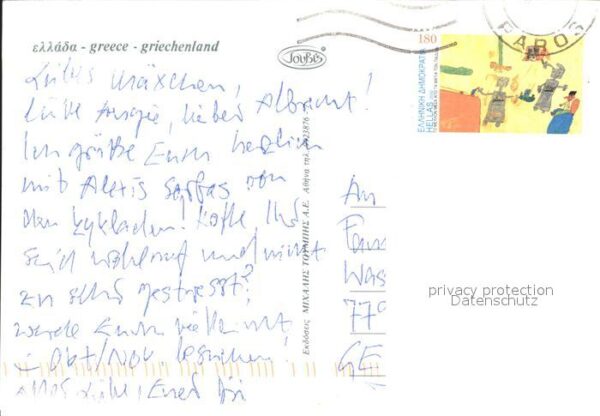 ελλάδα - greece - griechenland
Τουβής
180
PAROS
ΕΛΛΗΝΙΚΗ ΔΗΜΟΚΡΑΤΙΑ
HELLAS
Liebes Mäxchen,
liebe, lieber Albrecht!
Ich grüße Euch herzlich
mit Alexis Sorbas von
den Kykladen! Hoffe, Ihr
seid wohlauf und nicht
zu sehr gestresst?
werde Euch vielleicht
i Okt/Nov besuchen,
alles Liebe, Eure
Εκδόσεις ΜΙΧΑΛΗΣ ΤΟΥΜΠΗΣ Α.Ε. Αθήνα τηλ. 9923876
An
Fam
Was
779
GE
privacy protection
Datenschutz